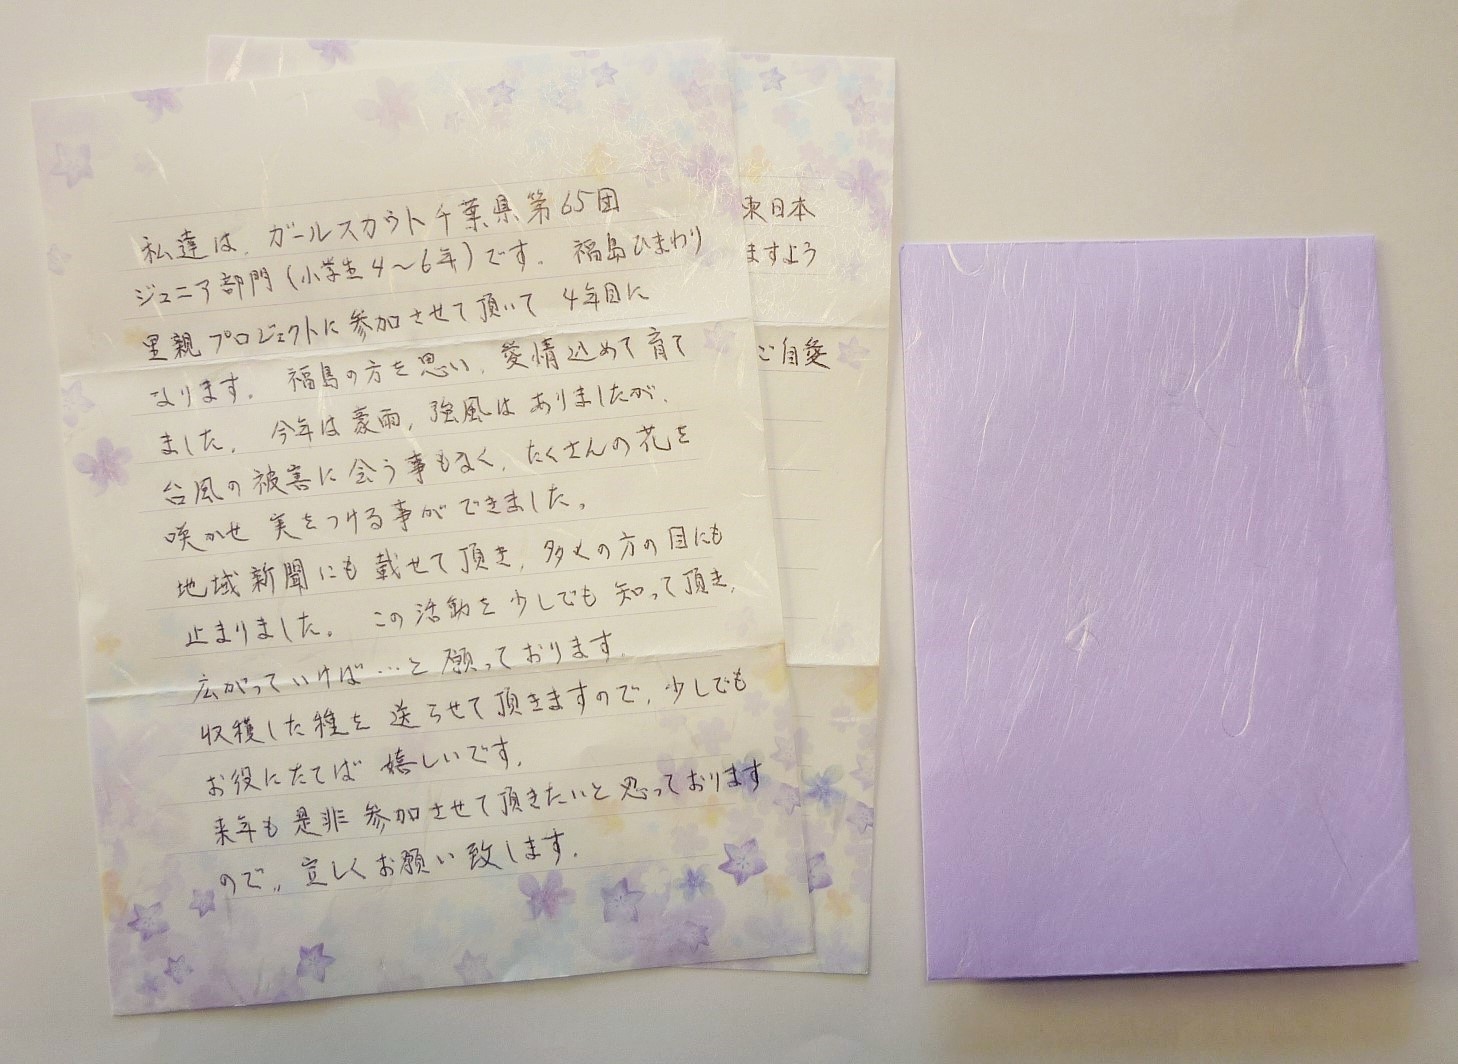 私達は、ガールスカウト千葉県第65団
ジュニア部門(小学生4〜6年)です。福島ひまわり
里親プロジェクトに参加させて頂いて4年目に
なります。福島の方を思い、愛情込めて育て
ました。今年は豪雨,強風はありましたが、
台風の被害に会う事もなく、たくさんの花を
咲かせ実をつける事ができました。
地域新聞にも載せて頂き,多くの方の目にも
止まりました。この活動を少しでも知って頂き,
広がっていけば…と願っております。
収穫した種を送らせて頂きますので,少しでも
お役にたてば嬉しいです。
来年も是非参加させて頂きたいと思っております
ので,,宜しくお願い致します。
東日本
ますよう
ご自愛